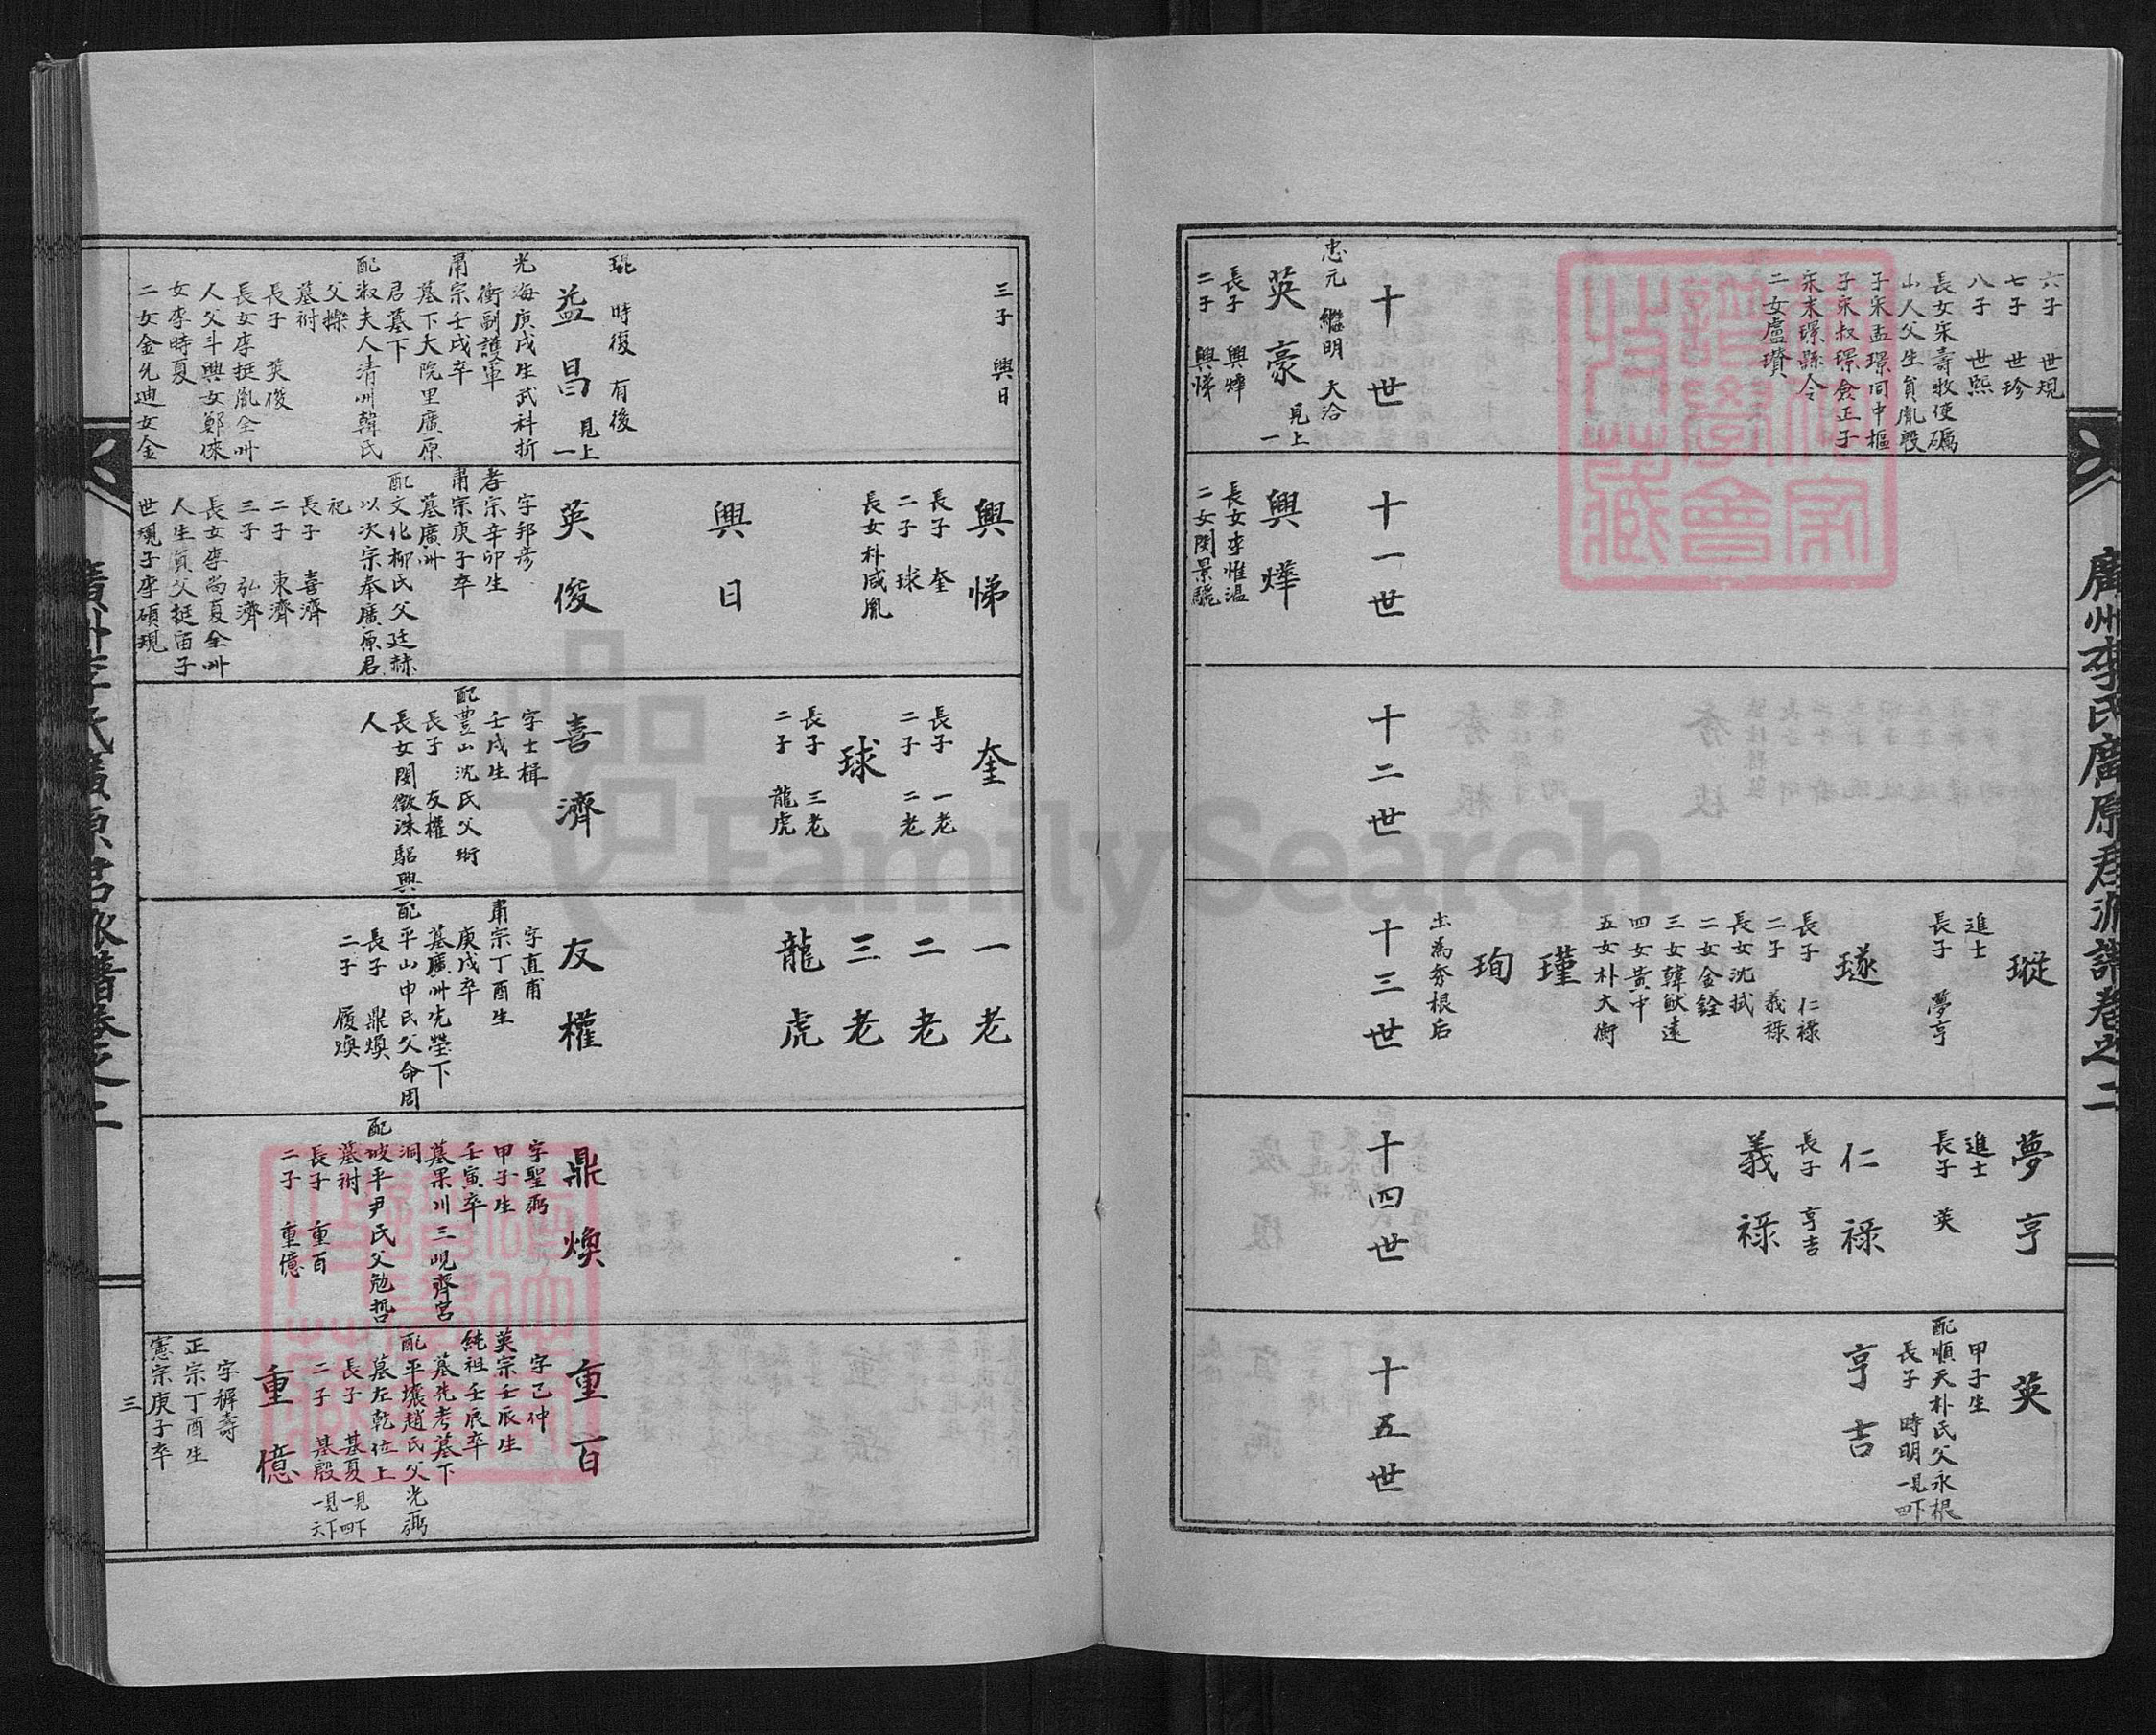 廣州李氏廣原君派譜卷之二
六子 世規
七子 世珍
八子 世熙
長女宋壽牧使礪
山人父生貟胤殷
子宋孟璟同中樞
子宋叔璟僉正子
宋末璟縣令
二女盧瓆
十世
忠元 繼明 大治
英豪 見上一
長子 興燁
二子 興悌
十一世
興燁
長女李惟溫
二女閔景騘
十二世
瑽
進士
長子 夢亨
璲
長子 仁祿
二子 義祿
長女沈拭
二女金銓
三女韓猷遠
四女黃中
五女朴大衡
瑾
珣
出爲秀根后
十三世
夢亨
進士
長子 英
仁祿
長子 亨吉
義祿
十四世
英
甲子生
配順天朴氏父永根
長子 時明 見下一四
亨吉
十五世
三子 興日
琨 時復 有後
益昌 見上一
光海庚戌生武科折
衝副護軍
肅宗壬戌卒
墓下大院里廣原
君墓下
配淑夫人清州韓氏
父擽
墓祔
長子 英俊
長女李挺胤全州
人父斗興女鄭倈
女李時夏
二女金允迪女金
興悌
長子 奎
二子 球
長女朴咸胤
興日
英俊
字邦彦
孝宗辛卯生
肅宗庚子卒
墓廣州
配文化柳氏父廷赫
以次宗奉廣原君
祀
長子 喜濟
二子 東濟
三子 弘濟
長女李尚夏全州
人生貟父挺宙子
世瑍子李碩現
奎
長子 一老
二子 二老
球
長子 三老
二子 龍虎
喜濟
字士楫
壬戌生
配豊山沈氏父珩
長子 友權
長女閔徵洙驪興
人
一老
二老
三老
龍虎
友權
字直甫
肅宗丁酉生
庚戌卒
墓廣州先塋下
配平山申氏父命周
長子 鼎煥
二子 履煥
鼎煥
字聖弼
甲子生
壬寅卒
墓果川三峴齊宮
洞
配坡平尹氏父勉哲
墓祔
長子 重百
二子 重億
重百
字己仲
英宗壬辰生
純祖壬辰卒
墓先考墓下
配平壤趙氏父光弼
墓左乾位上
長子 基夏 見下一四
二子 基殷 見下一六
重億
字穉壽
正宗丁酉生
憲宗庚子卒
三
廣州李氏廣原君派譜卷之二
FamilySearch